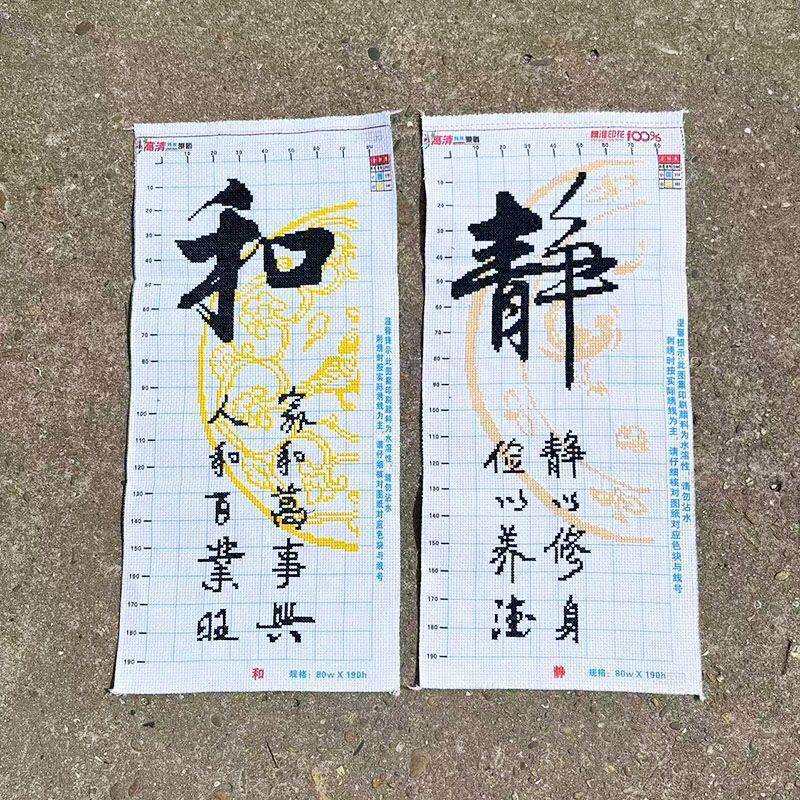 高清
和
家和萬事興
人和百業旺
温馨提示:此图案印刷颜料为水溶性,请勿沾水
刺绣时按实际绣线为主,请仔细核对图纸对应色块与线号
10
20
30
40
50
60
70
80
90
100
110
120
130
140
150
160
170
180
190
和
规格:80w X 190h
高清
精准印花 100%
静
静以修身
俭以养德
温馨提示:此图案印刷颜料为水溶性,请勿沾水
刺绣时按实际绣线为主,请仔细核对图纸对应色块与线号
10
20
30
40
50
60
70
80
90
100
110
120
130
140
150
160
170
180
190
静
规格:80w X 190h